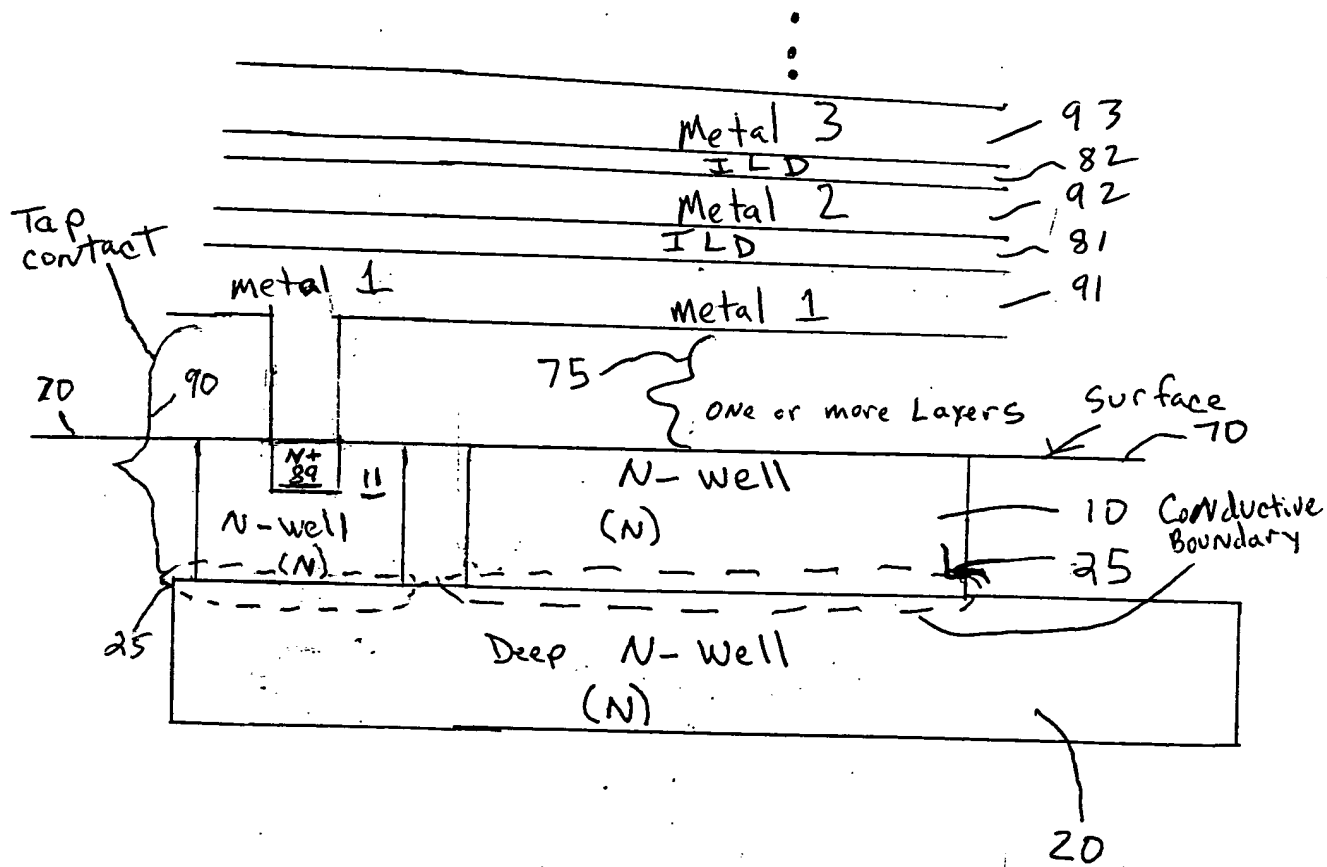 Metal 3
93
ILD
82
Metal 2
92
ILD
81
Tap
contact
metal 1
Metal 1
91
75
one or more Layers
90
70
Surface
70
N+
89
11
N-well
(N)
N-well
(N)
10
Conductive
Boundary
25
25
Deep N-Well
(N)
20